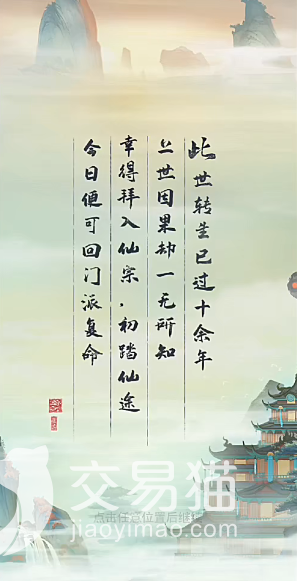 此世转生已过十余年
上世因果却一无所知
幸得拜入仙宗，初踏仙途
今日便可回门派复命
交易猫
jiaoyimao.com